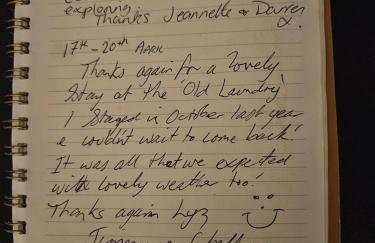 exploring.
Thanks Jeannette & Darren
x.
17th - 20th
Thanks again for a lovely
Stay at the 'Old Laundry'
I Stayed in October last year
& couldn't wait to come back!
It was all that we expected
with lovely weather too!
Thanks again